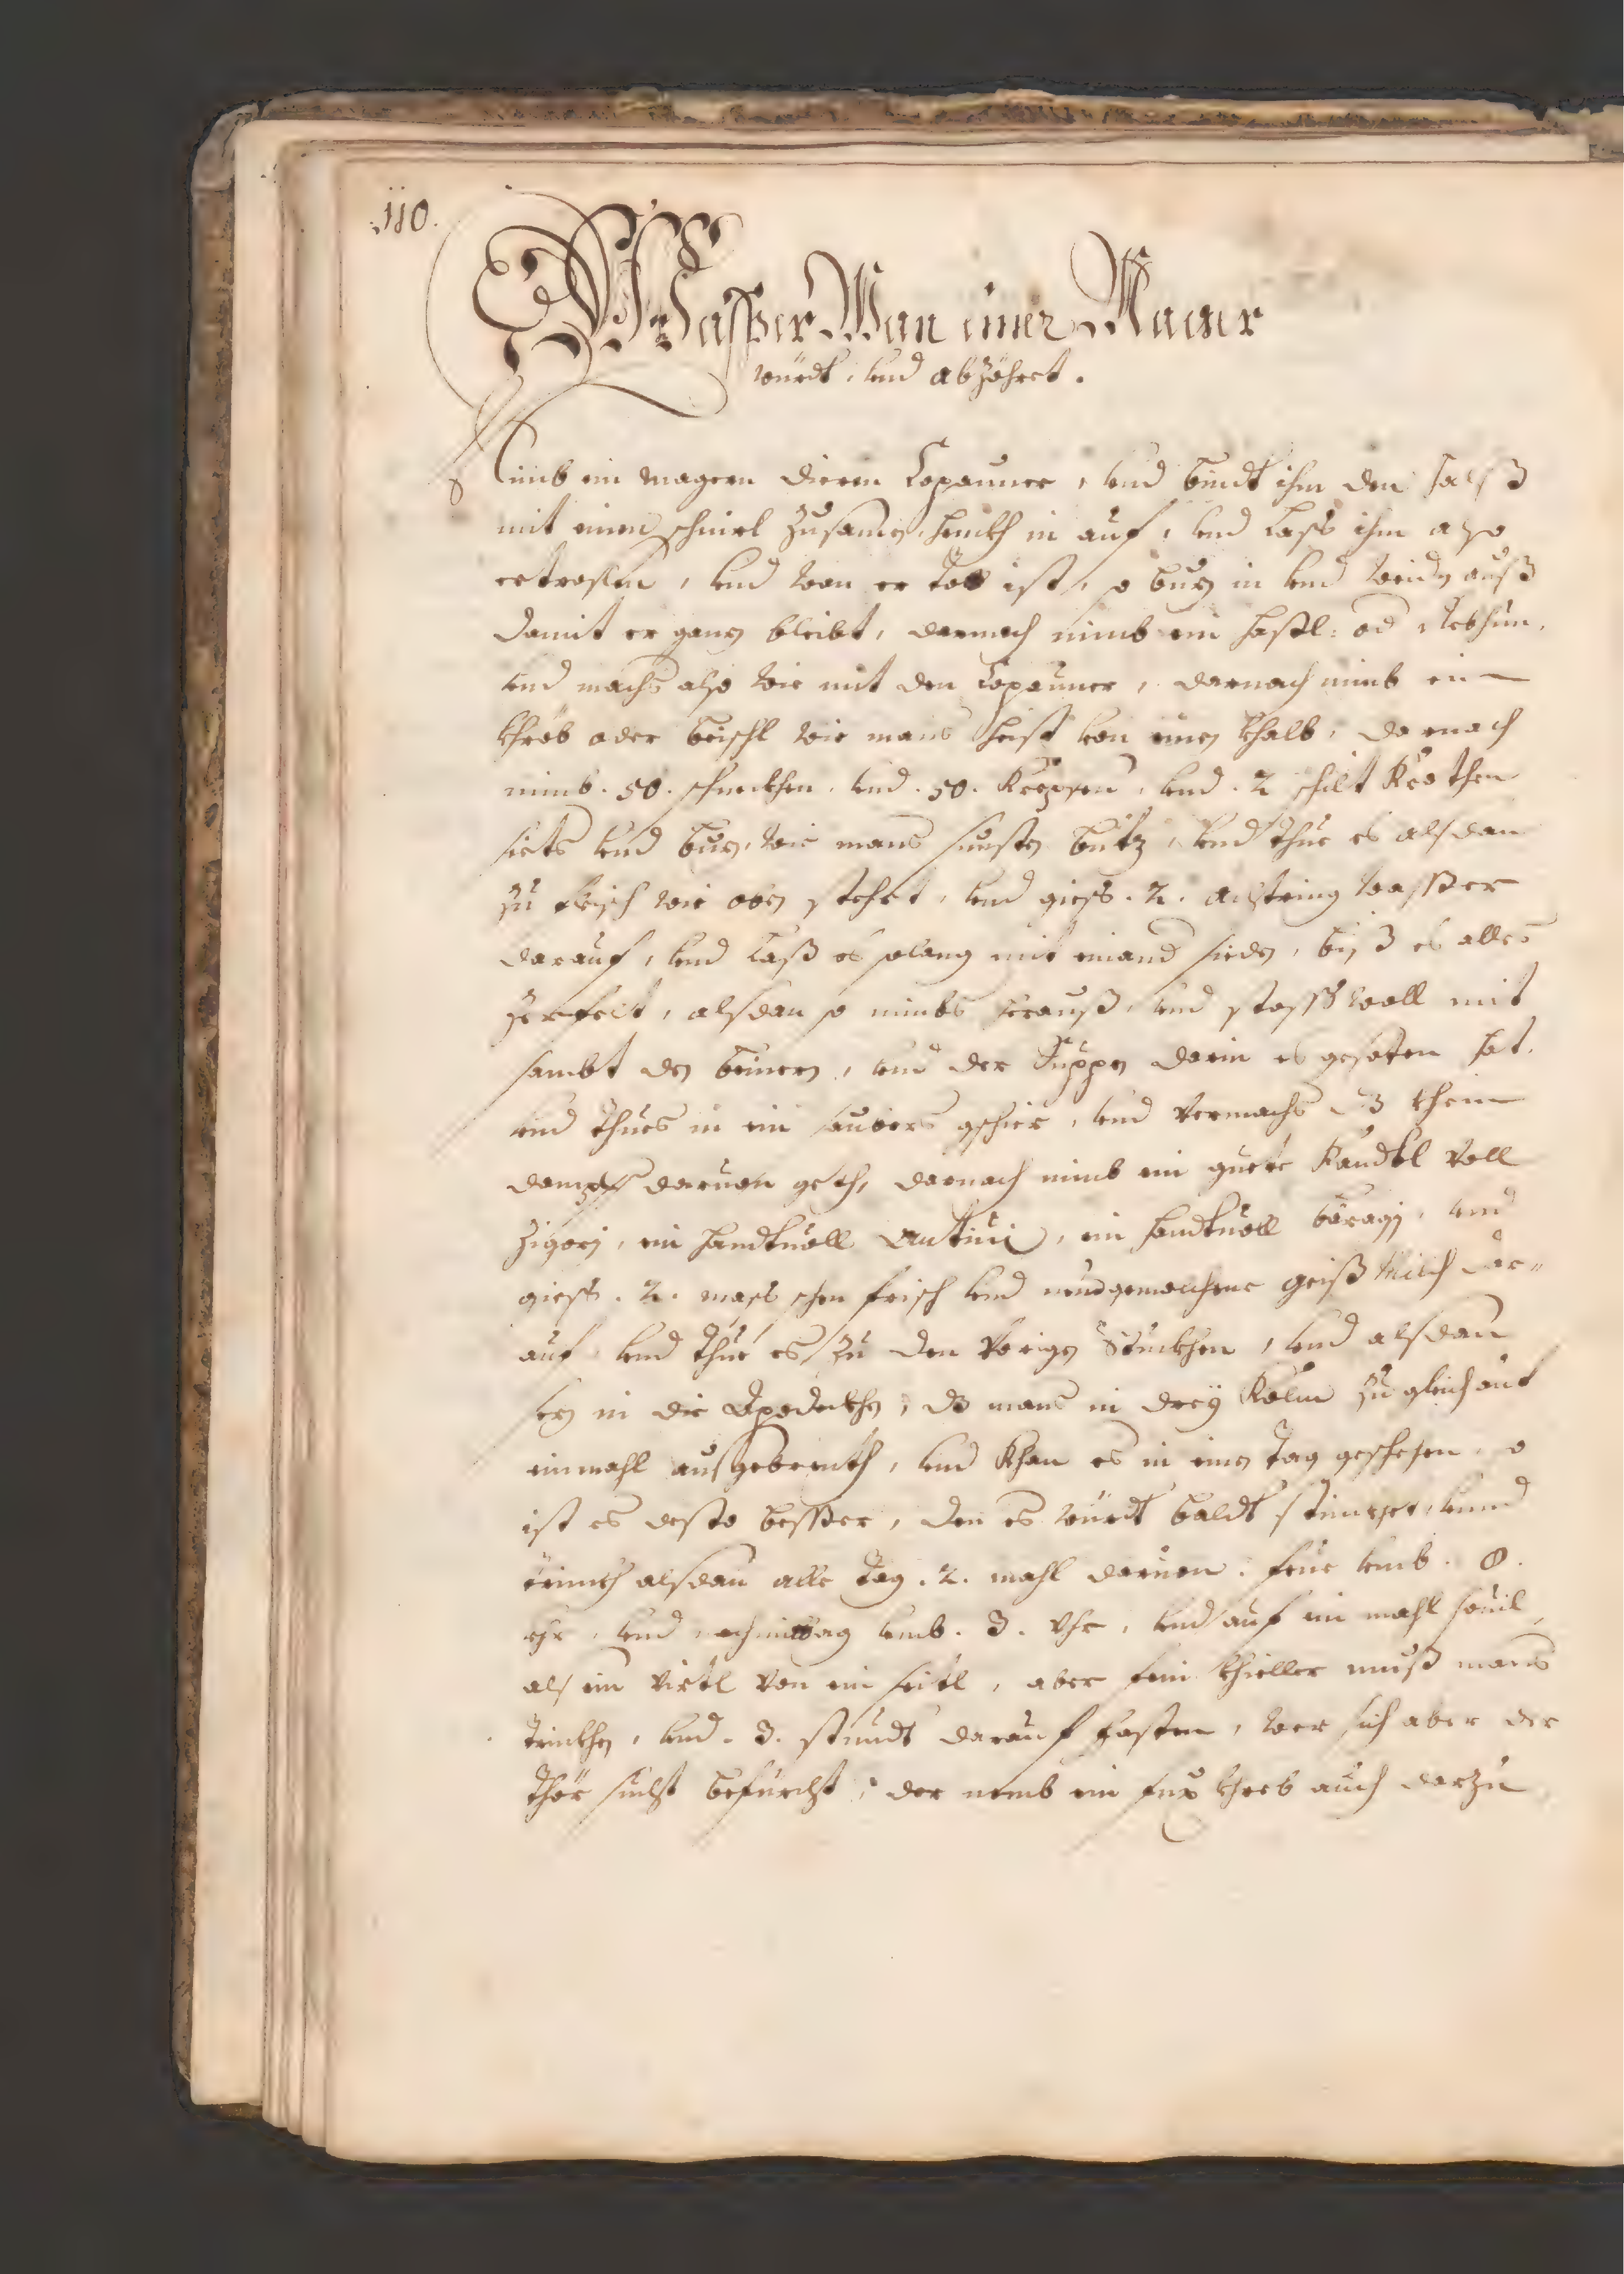 110.
Wasßer Wan einer Mager
würdt, und abzöhret.
Nimb ein magern dieren Copauner, und bindt ihm den halß
mit einem schnierl zusamen, henckh in auf, und lass ihm also
ertroslen, und wan er tott ist, so buz in und waidn auß
damit er ganz bleibt, darnach nimb ein hassl: od Rebhun,
und machs also wie mit den Copauner, darnach nimb ein
khröb oder beischl wie mans heist von einen khalb, darnach
nimb. 50. schneckhen, und. 50. Krepsen, und. 2 schilt Krothen
siets und buz, wie mans sunsten butz, und thue es alsdan
zu fleisch wie oben stehet, und giess. 2. achtring wasßer
darauf, und laß es solang mit einand sieden, biß es alles
zerfelt, alsdan so nimbs herauß, und stoss woll mit
sambt den beinern, und der Suppen darin es gesoten hat,
und thues in ein saubers gschier, und vermachs dz khein
dampf daruon geth, darnach nimb ein guete handtvoll
zigorj, ein handtuoll Antiui, ein handtuoll boragj, und
giess. 2. mass schen frisch und neugemolchene geiß Milch dar-
auf und thue es zu den vorigen Stuckhen, und alsdan
in die Apodeckhen, dz mans in dreÿ Kolm zu gleich auf
einmahl aussgebrenth, und khan es in einen tag geschehen, so
ist es desto besser, den es würdt baldt stinckhet, unnd
trinckh alsdan alle tag. 2. mahl daruon. frue umb. 8.
vhr, und nachmittag umb. 3. vhr, und auf ein mahl souil
als ein virtl von ein seitl, aber fein khieller muß mans
trinckhen, und. 3. stundt darauf fasten, wer sich aber der
thör sucht beförcht, der nemb ein fux khreb auch darzu